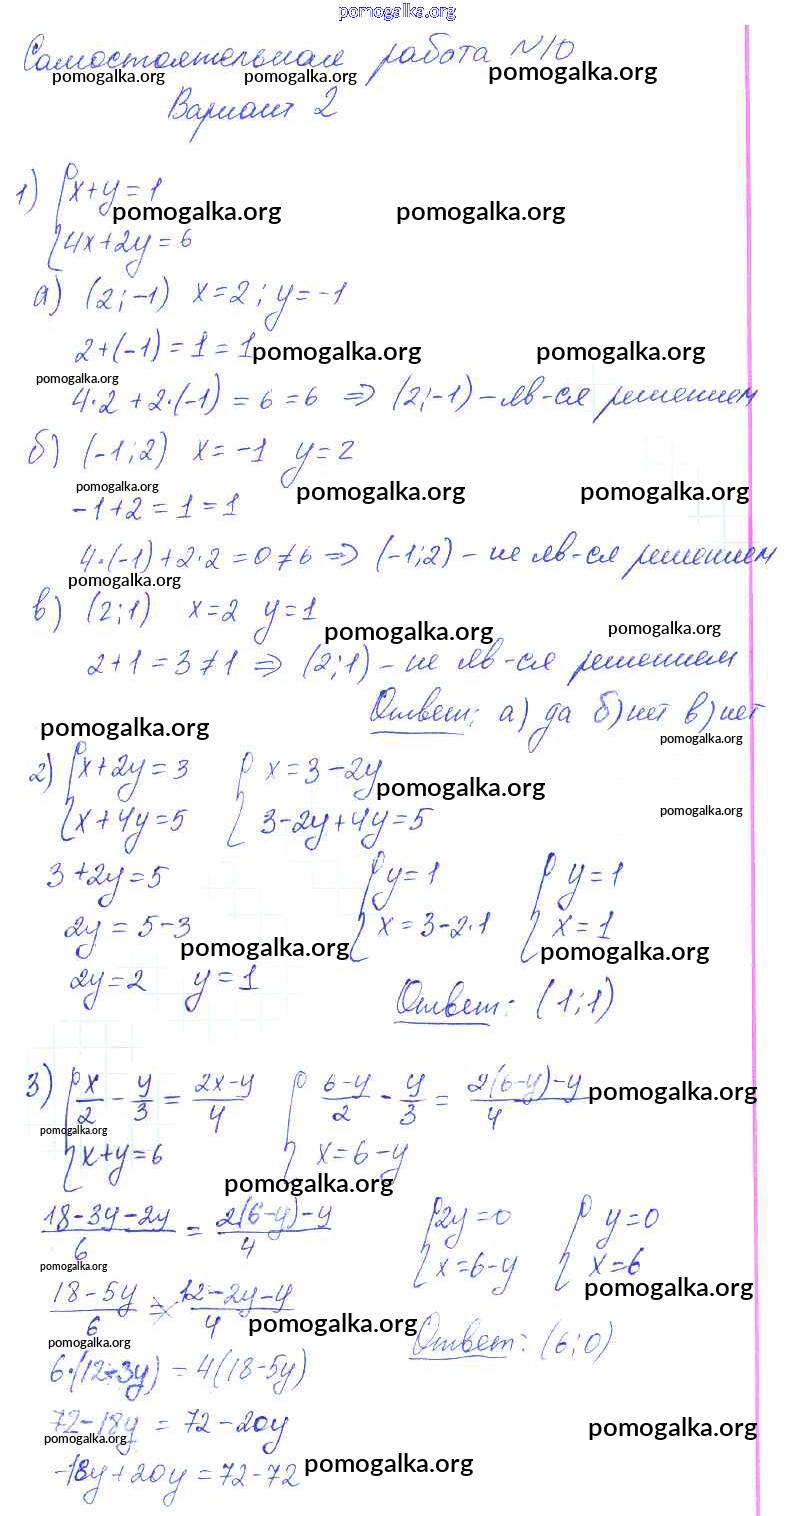 pomogalka.org
Самостоятельная работа N10
pomogalka.org pomogalka.org pomogalka.org
Вариант 2
1) { x+y=1
pomogalka.org pomogalka.org
4x+2y=6
а) (2;-1) x=2; y=-1
2+(-1)=1=1
pomogalka.org pomogalka.org
pomogalka.org
4·2+2·(-1)=6=6 => (2;-1) – яв-ся решением
б) (-1;2) x=-1 y=2
pomogalka.org pomogalka.org pomogalka.org
-1+2=1=1
4·(-1)+2·2=0≠6 => (-1;2) – не яв-ся решением
pomogalka.org
в) (2;1) x=2 y=1
pomogalka.org pomogalka.org
2+1=3≠1 => (2;1) – не яв-ся решением
Ответ: а) да б) нет в) нет
pomogalka.org pomogalka.org
2) { x+2y=3 { x=3-2y
pomogalka.org pomogalka.org
x+4y=5 3-2y+4y=5
3+2y=5 { y=1 { y=1
2y=5-3 x=3-2·1 x=1
pomogalka.org pomogalka.org
2y=2 y=1
Ответ: (1;1)
3) { x/2 - y/3 = (2x-y)/4 { (6-y)/2 - y/3 = (2(6-y)-y)/4
pomogalka.org
pomogalka.org
x+y=6 x=6-y
pomogalka.org
(18-3y-2y)/6 = (2(6-y)-y)/4 { 2y=0 { y=0
pomogalka.org
x=6-y x=6
pomogalka.org
(18-5y)/6 = (12-2y-y)/4
pomogalka.org pomogalka.org
Ответ: (6;0)
6·(12-3y)=4(18-5y)
72-18y=72-20y
pomogalka.org pomogalka.org
-18y+20y=72-72
pomogalka.org